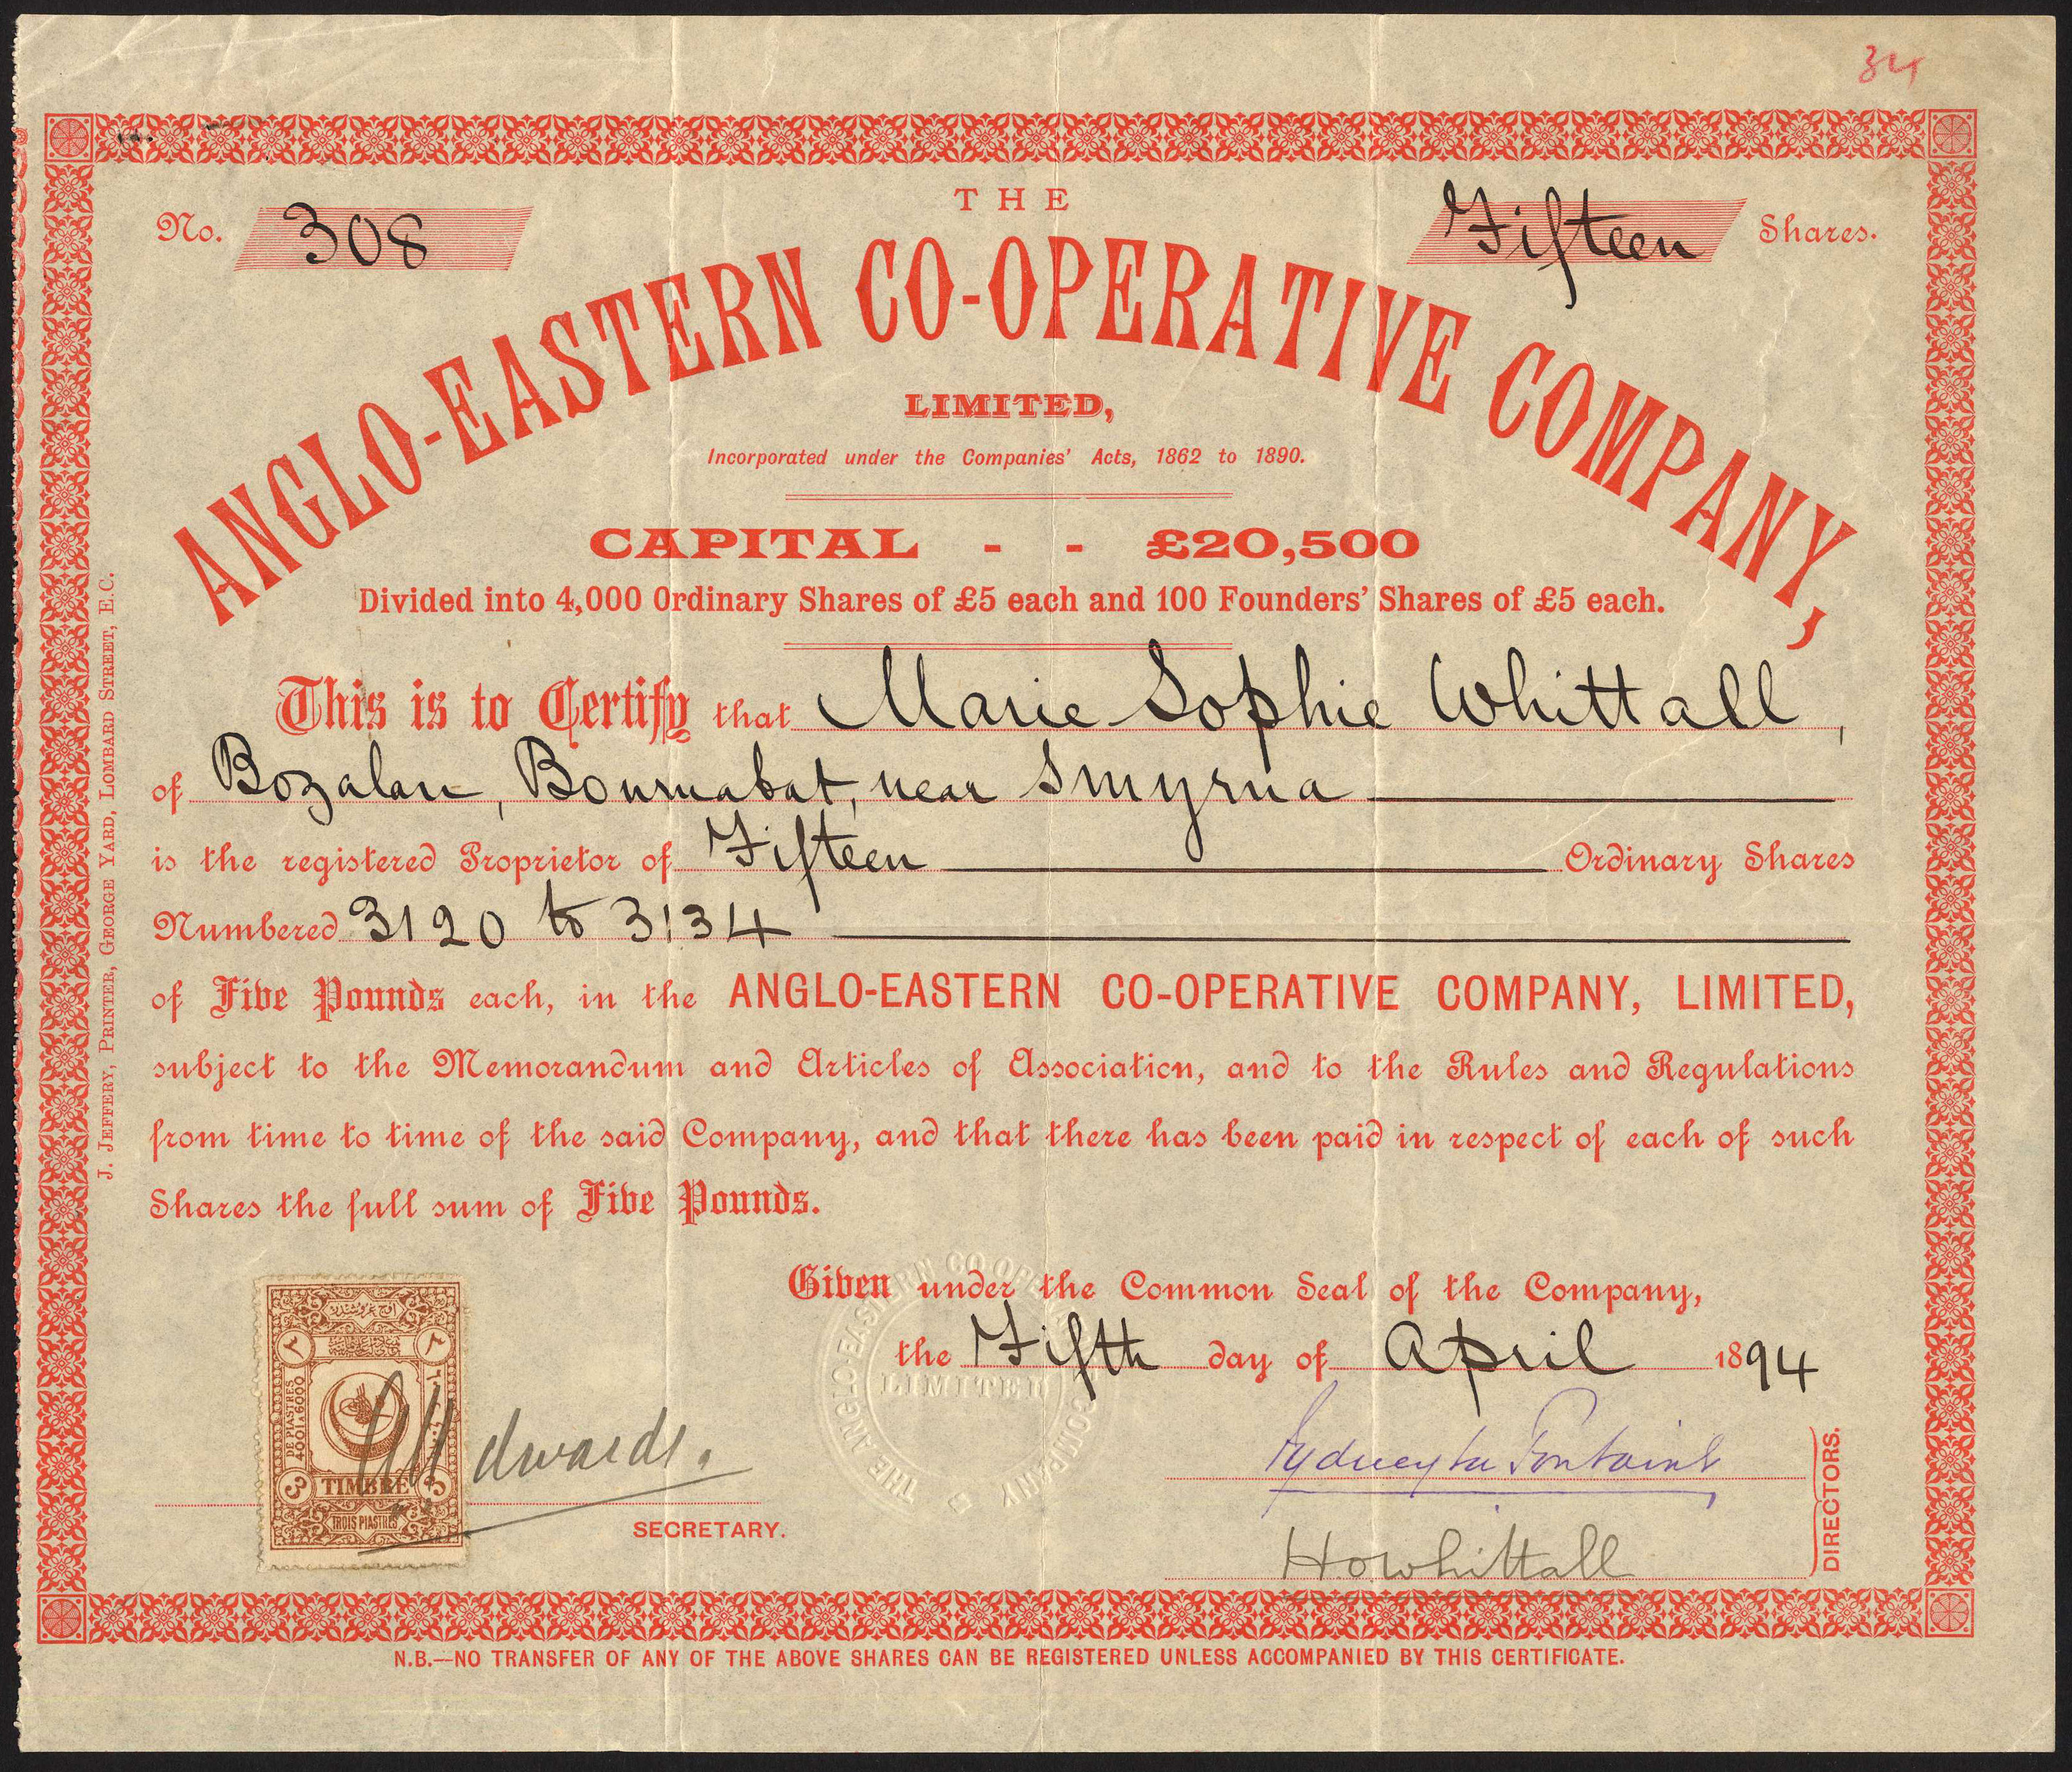 34
No. 308
Fifteen Shares.
THE
ANGLO-EASTERN CO-OPERATIVE COMPANY,
LIMITED,
Incorporated under the Companies' Acts, 1862 to 1890.
CAPITAL - - £20,500
Divided into 4,000 Ordinary Shares of £5 each and 100 Founders' Shares of £5 each.
This is to Certify that Marie Sophie Whittall,
of Bozalan, Bournabat, near Smyrna
is the registered Proprietor of Fifteen Ordinary Shares
Numbered 3120 to 3134
of Five Pounds each, in the ANGLO-EASTERN CO-OPERATIVE COMPANY, LIMITED,
subject to the Memorandum and Articles of Association, and to the Rules and Regulations
from time to time of the said Company, and that there has been paid in respect of each of such
Shares the full sum of Five Pounds.
Given under the Common Seal of the Company,
the Fifth day of April 1894
THE ANGLO-EASTERN CO-OPERATIVE COMPANY
LIMITED
اوچ غروشدر
٣ ٣
DE PIASTRES
4001 A 6000
3 TIMBRE 3
TROIS PIASTRES
Edwards.
SECRETARY.
Sydney La Fontaine
HOWhittall
DIRECTORS.
N.B.—NO TRANSFER OF ANY OF THE ABOVE SHARES CAN BE REGISTERED UNLESS ACCOMPANIED BY THIS CERTIFICATE.
J. JEFFERY, PRINTER, GEORGE YARD, LOMBARD STREET, E.C.